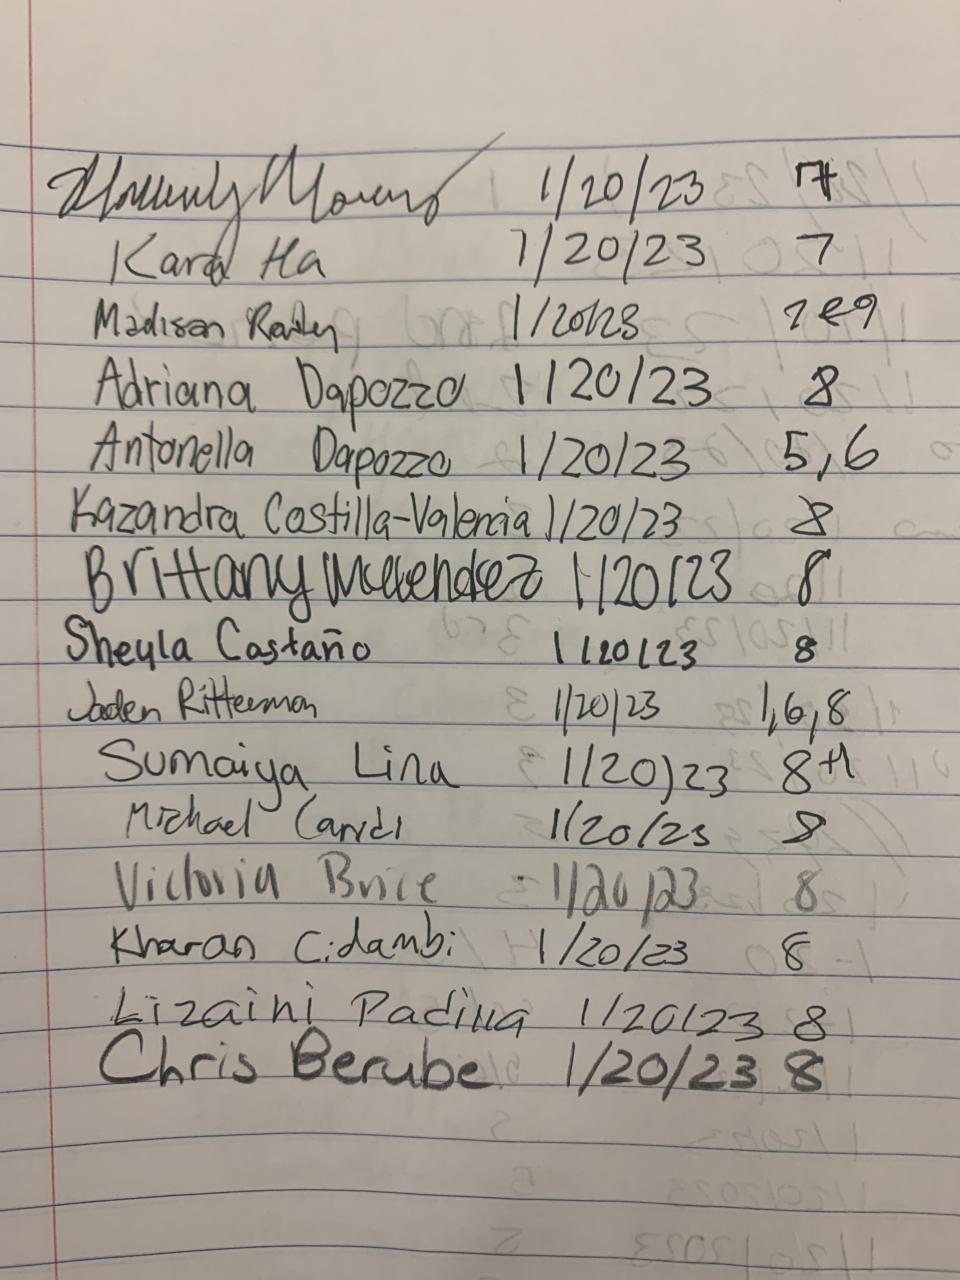 1/20/23 7
Kara Ha 1/20/23 7
Madison 1/20/23
Adriana Dapozzo 1/20/23 8
Antonella Dapozzo 1/20/23 5,6
Kazandra Costilla-Valencia 1/20/23 8
Brittany Melendez 1/20/23 8
Sheyla Castaño 1/20/23 8
Jaden Ritterman 1/20/23 1,6,8
Sumaiya Lina 1/20/23 8th
Michael 1/20/23 8
Victoria Brice 1/20/23 8
Kharan Cidambi 1/20/23 8
Lizaini Padilla 1/20/23 8
Chris Berube 1/20/23 8